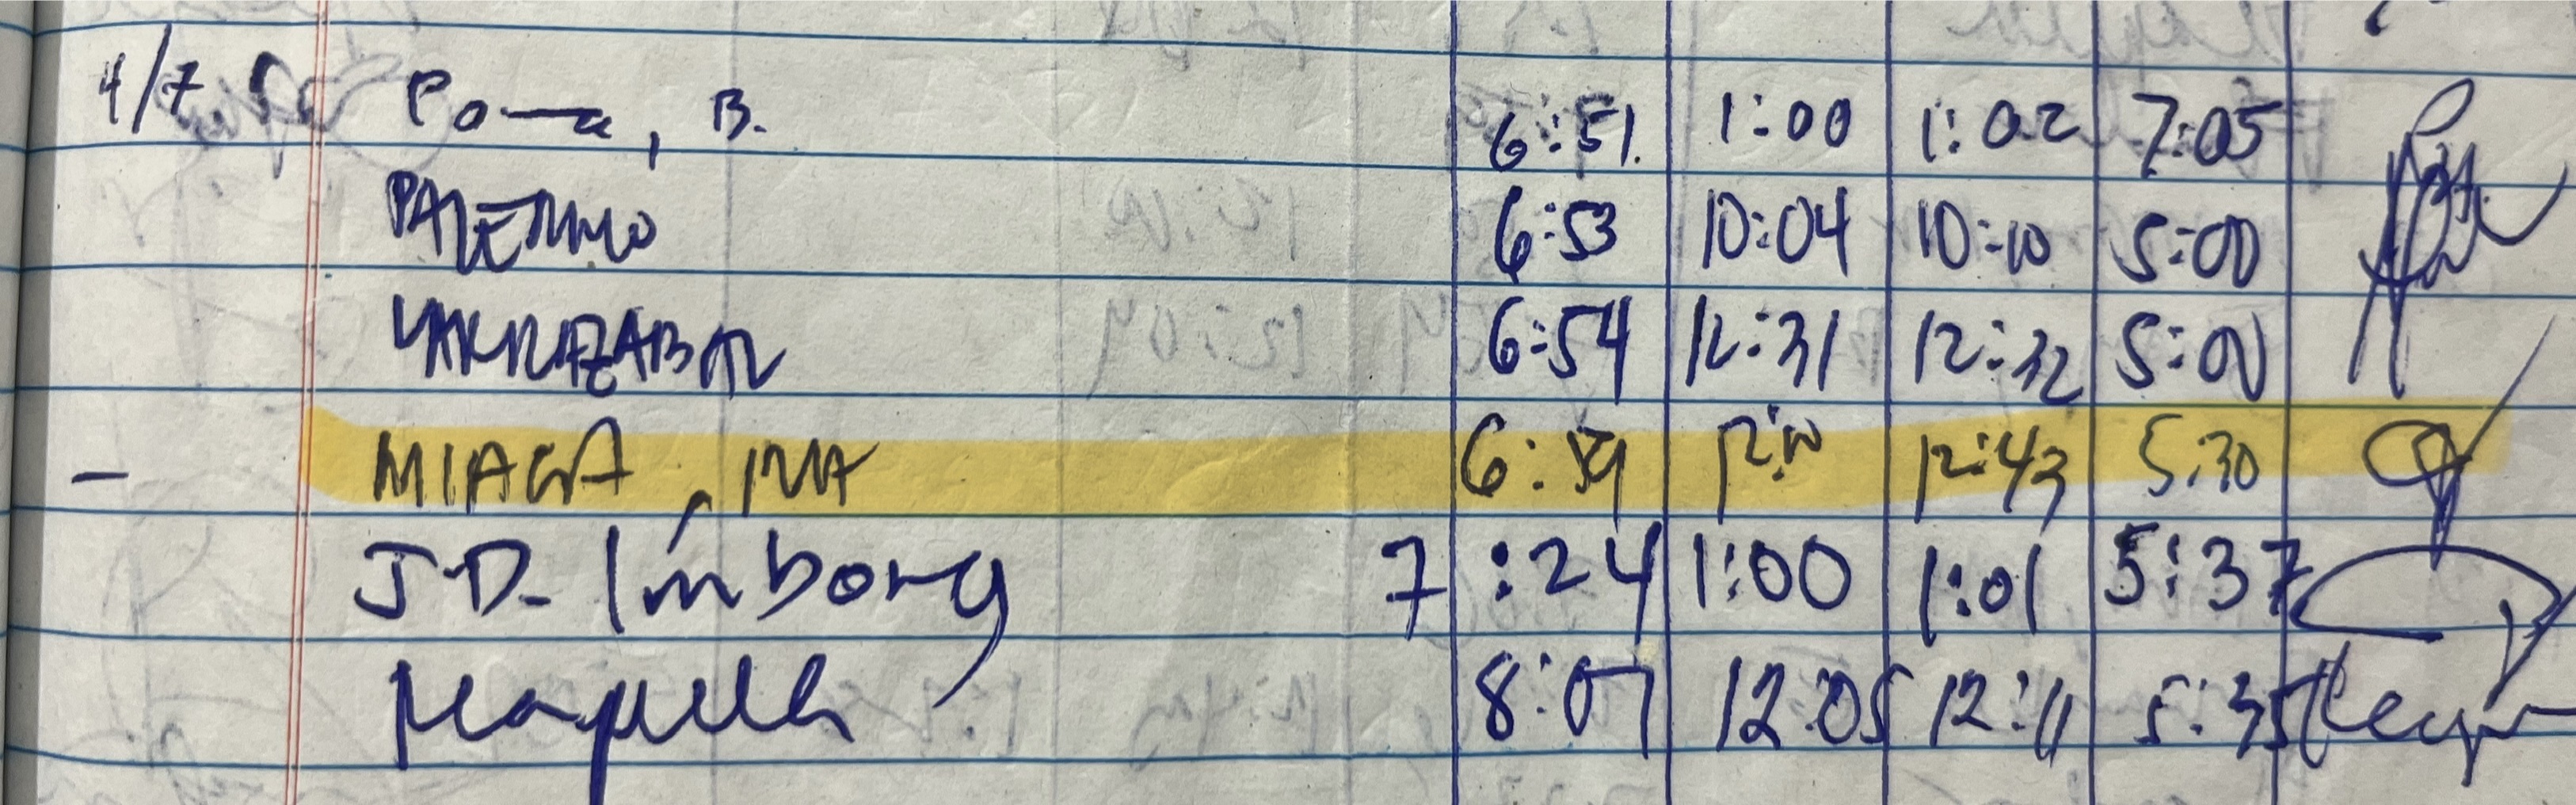 4/7 B. 6:51 1:00 1:02 7:05
PALERMO 6:53 10:04 10:10 5:00
6:54 12:31 12:32 5:00
MIAGA, INA 6:59 12:10 12:43 5:30
J.D. Limborg 7:24 1:00 1:01 5:37
8:07 12:05 12:11 5:35